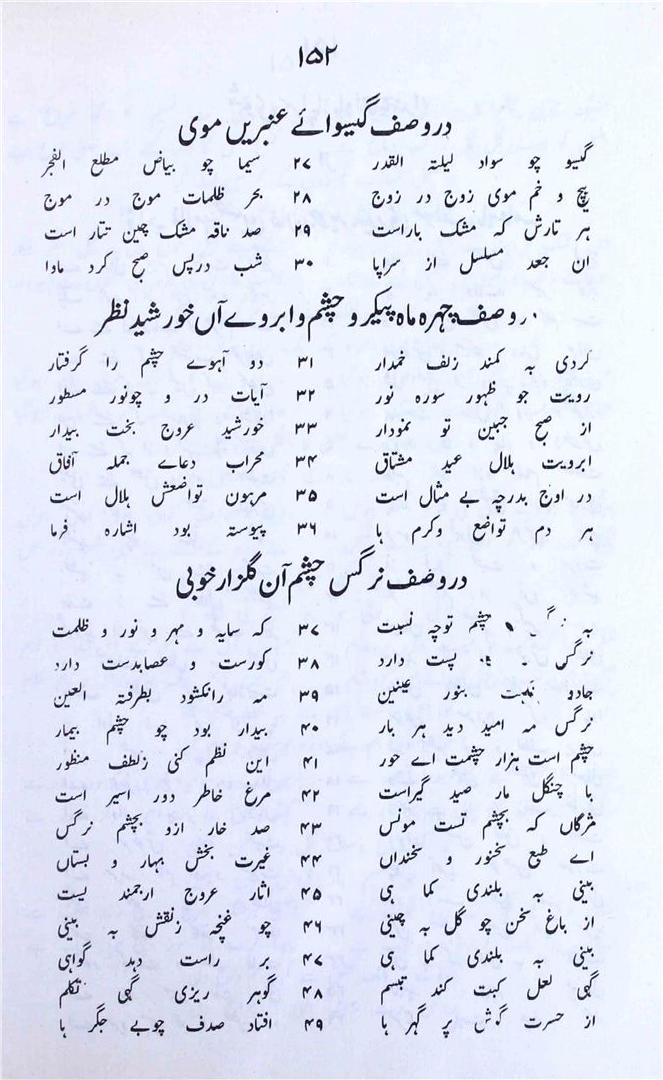 ۱۵۲
در وصف گیسوائے عنبریں موی
گیسو چو سواد لیلتہ القدر ۲۷ سیما چو بیاض مطلع الفجر
پیچ و خم موی زوج در زوج ۲۸ بحر ظلمات موج در موج
ہر تارش کہ مشک باراست ۲۹ صد ناقہ مشک چین تتار است
ان جعد مسلسل از سراپا ۳۰ شب درپس صبح کرد ماوا
روصف چہرہ ماہ پیکر و چشم و ابروے آں خورشید نظر
کردی بہ کمند زلف خمدار ۳۱ دو آہوے چشم را گرفتار
رویت جو ظہور سورہ نور ۳۲ آیات در و چونور مسطور
از صبح جبین تو نمودار ۳۳ خورشید عروج بخت بیدار
ابرویت ہلال عید مشتاق ۳۴ محراب دعاے جملہ آفاق
در اوج بدرجہ بے مثال است ۳۵ مرہون تواضعش ہلال است
ہر دم تواضع وکرم ہا ۳۶ پیوستہ بود اشارہ فرما
در وصف نرگس چشم آن گلزار خوبی
بہ چشم توچہ نسبت ۳۷ کہ سایہ و مہر و نور و ظلمت
نرگس پست دارد ۳۸ کورست و عصابدست دارد
جادو بنور عینین ۳۹ مہ رانکشود بطرفتہ العین
نرگس مہ امید دید ہر بار ۴۰ بیدار بود چو چشم بیمار
چشم است ہزار چشمت اے حور ۴۱ این نظم کنی زلطف منظور
با چنگل مار صید گیراست ۴۲ مرغ خاطر دور اسیر است
مژگاں کہ بچشم تست مونس ۴۳ صد خار ازو بچشم نرگس
اے طبع سخنور و سخنداں ۴۴ غیرت بخش بہار و بساں
بینی بہ بلندی کما ہی ۴۵ اثار عروج ارجمند یست
از باغ سخن چو گل بہ چینی ۴۶ چو غنچہ زنقش بہ بینی
بینی بہ بلندی کما ہی ۴۷ بر راست دہد گواہی
گہی لعل کبت کند تبسم ۴۸ گوہر ریزی گہی تکلم
از حسرت گوش پر گہر ہا ۴۹ افتاد صدف چوبے جگر ہا